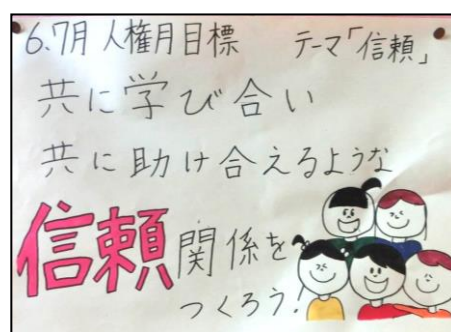 6.7月 人権月目標 テーマ「信頼」
共に学び合い
共に助け合えるような
信頼関係を
つくろう!